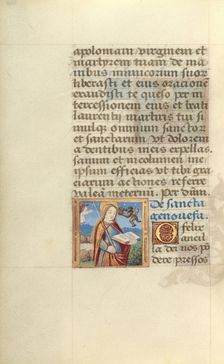 apoloniam virginem et
martyrem tuam de ma
nibus inimicorum suor
liberasti et eius oracionē
exaudisti te queso per in
tercessionem eius et brati
laurentii martiris tui si
mulqꝫ omnium sanctor
et sanctarum ut dolorem
a dentibus meis expellas.
sanum et incolumem me
ipsum efficias ut tibi gra
ciarum actiones referre
valeā in eternum. Per dnm.
De sancta
genouefa.
O felix
ancil
la dei nos po
dere pressos